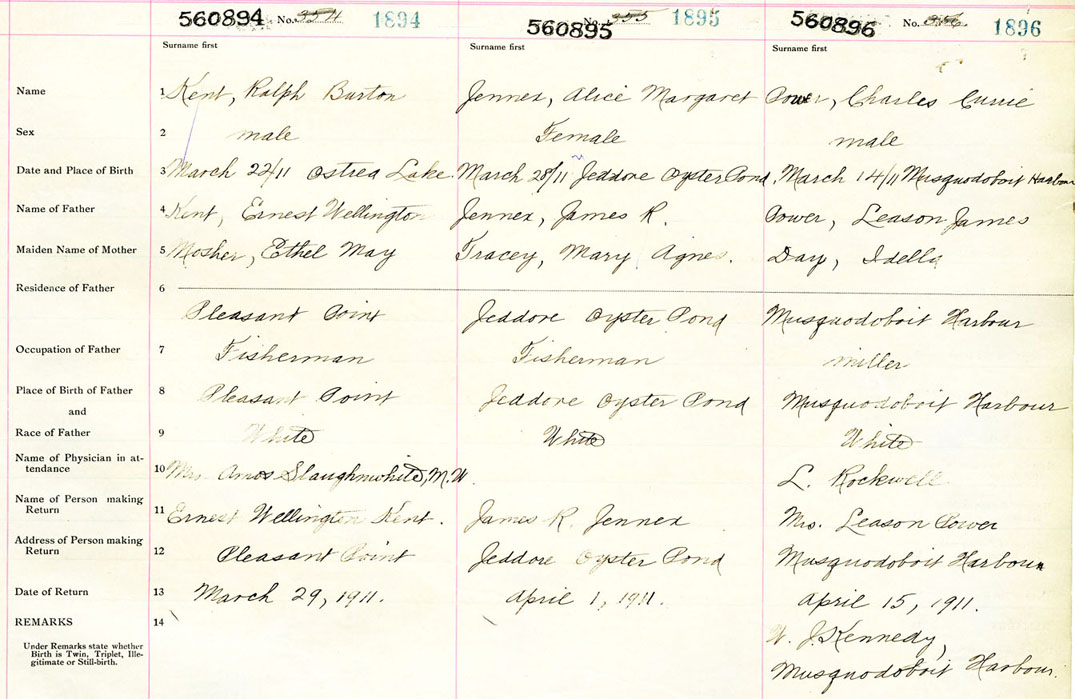 560894 No. 354 1894 560895 No. 355 1895 560896 No. 356 1896
Surname first Surname first Surname first
Name 1 Kent, Ralph Burton Jennex, Alice Margaret Power, Charles Currie
Sex 2 male Female male
Date and Place of Birth 3 March 22/11 Ostrea Lake. March 28/11 Jeddore Oyster Pond, March 14/11 Musquodoboit Harbour
Name of Father 4 Kent, Ernest Wellington Jennex, James R. Power, Leason James
Maiden Name of Mother 5 Mosher, Ethel May Tracey, Mary Agnes. Day, Idella
Residence of Father 6
Pleasant Point Jeddore Oyster Pond Musquodoboit Harbour
Occupation of Father 7 Fisherman Fisherman miller
Place of Birth of Father 8 Pleasant Point Jeddore Oyster Pond Musquodoboit Harbour
and
Race of Father 9 White White White
Name of Physician in at-
tendance 10 Mrs. Amos Slaughnwhite, M.W. L. Rockwell
Name of Person making
Return 11 Ernest Wellington Kent. James R. Jennex Mrs. Leason Power
Address of Person making
Return 12 Pleasant Point Jeddore Oyster Pond Musquodoboit Harbour
Date of Return 13 March 29, 1911. April 1, 1911. April 15, 1911.
REMARKS 14 W. J. Kennedy,
Under Remarks state whether
Birth is Twin, Triplet, Ille-
gitimate or Still-birth.
Musquodoboit Harbour.